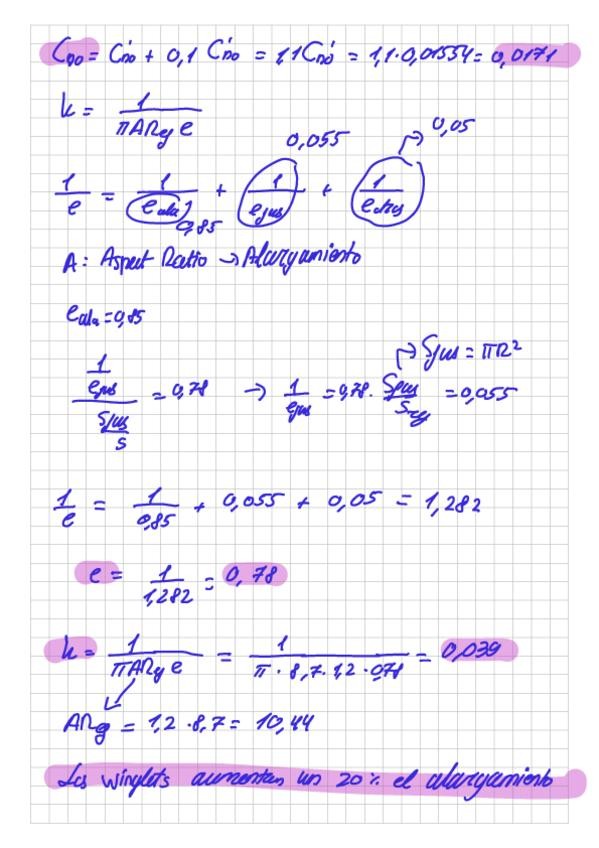 C_D0 = C'_D0 + 0,1 C'_D0 = 1,1 C'_D0 = 1,1 · 0,01554 = 0,0171
k = 1 / (π AReg e)
0,055 → 0,05
1/e = 1/e_ala + 1/e_fus + 1/e_otros
0,85
A: Aspect Ratio → Alargamiento
e_ala = 0,85
(1/e_fus) / (S_fus/S) = 0,78 → 1/e_fus = 0,78 · S_fus/S_ref = 0,055
→ S_fus = πR²
1/e = 1/0,85 + 0,055 + 0,05 = 1,282
e = 1/1,282 = 0,78
k = 1 / (π AReg e) = 1 / (π · 8,7 · 1,2 · 0,78) = 0,039
AReg = 1,2 · 8,7 = 10,44
Los winglets aumentan un 20% el alargamiento